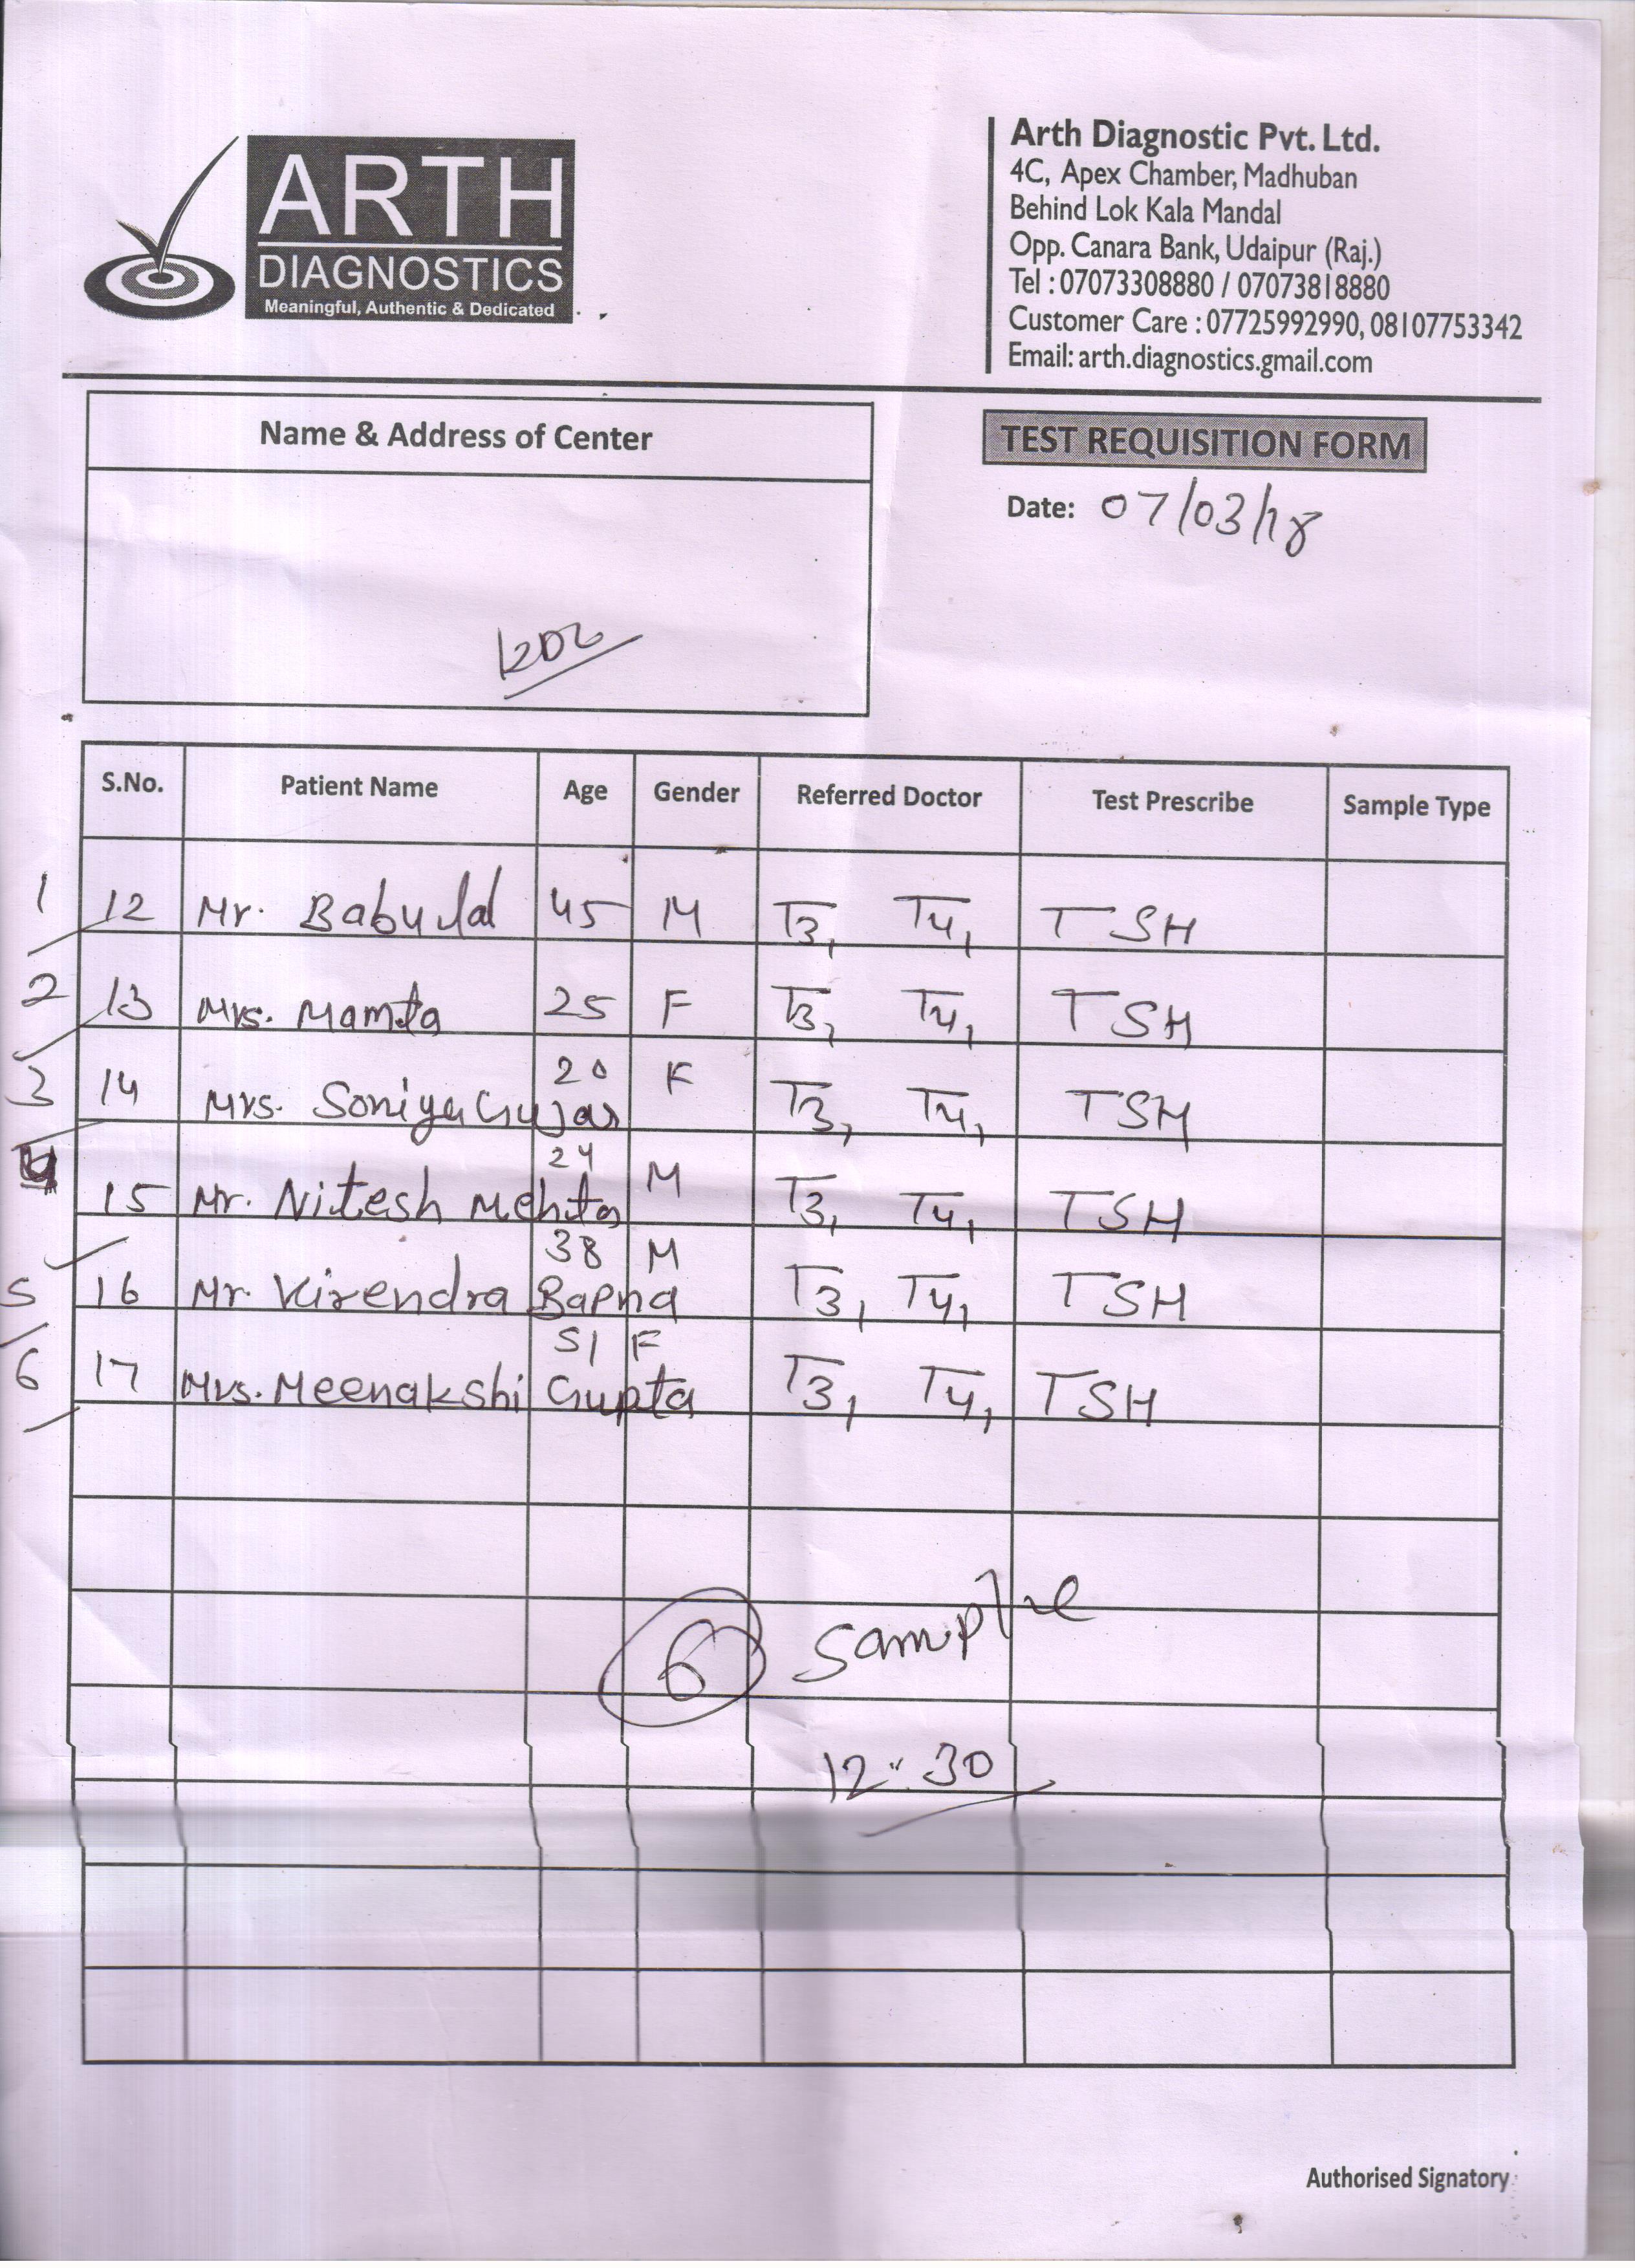 ARTH
DIAGNOSTICS
Meaningful, Authentic & Dedicated
Arth Diagnostic Pvt. Ltd.
4C, Apex Chamber, Madhuban
Behind Lok Kala Mandal
Opp. Canara Bank, Udaipur (Raj.)
Tel : 07073308880 / 07073818880
Customer Care : 07725992990, 08107753342
Email: arth.diagnostics.gmail.com
Name & Address of Center
TEST REQUISITION FORM
Date: 07/03/18
S.No. Patient Name Age Gender Referred Doctor Test Prescribe Sample Type
1 12 Mr. Babulal 45 M T3, T4, TSH
2 13 Mrs. Mamta 25 F T3, T4, TSH
3 14 Mrs. Soniya Gujar 20 F T3, T4, TSH
4 15 Mr. Nitesh Mehta 24 M T3, T4, TSH
5 16 Mr. Virendra Bapna 38 M T3, T4, TSH
6 17 Mrs. Meenakshi Gupta 51 F T3, T4, TSH
6 Sample
12:30
Authorised Signatory